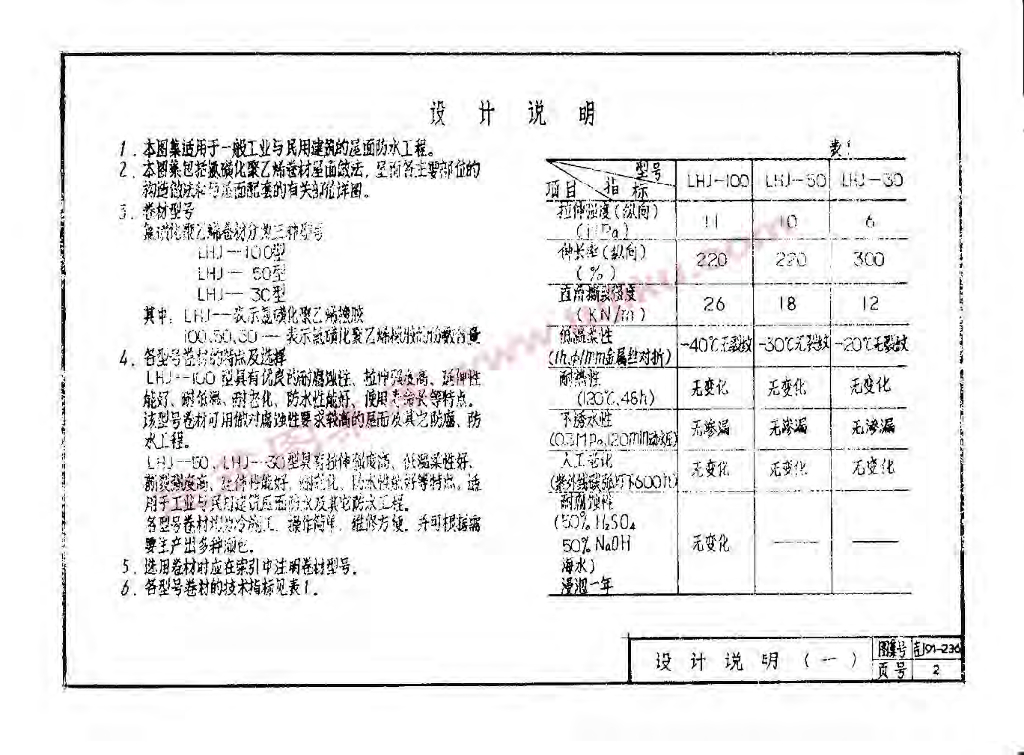 设 计 说 明
1. 本图集适用于一般工业与民用建筑的屋面防水工程。
2. 本图集包括氯磺化聚乙烯卷材屋面做法，屋面各主要部位的
构造做法和与屋面配套的有关部位详图。
3. 卷材型号
氯磺化聚乙烯卷材分为三种型号
LHJ—100型
LHJ— 50型
LHJ— 30型
其中：LHJ——表示氯磺化聚乙烯橡胶
100、50、30 — 表示氯磺化聚乙烯橡胶的份数含量
4. 各型号卷材的特点及选择
LHJ—100 型具有优良的耐腐蚀性、拉伸强度高、延伸性
能好、耐低温、耐老化、防水性能好、使用寿命长等特点。
该型号卷材可用做对腐蚀性要求较高的屋面及其它防腐、防
水工程。
LHJ—50、LHJ—30型具有拉伸强度高、低温柔性好、
撕裂强度高、延伸性能好、耐老化、防水性能好等特点。适
用于工业与民用建筑屋面防水及其它防水工程。
各型号卷材均为冷施工、操作简单、维修方便、并可根据需
要生产出多种颜色。
5. 选用卷材时应在索引中注明卷材型号。
6. 各型号卷材的技术指标见表1。
表1
项目 指标 型号 LHJ—100 LHJ—50 LHJ—30
拉伸强度(纵向)
(MPa) 11 10 6
伸长率(纵向)
(%) 220 220 300
直角撕裂强度
(KN/m) 26 18 12
低温柔性
(1h,φ1mm金属丝对折) -40℃无裂纹 -30℃无裂纹 -20℃无裂纹
耐热性
(120℃,48h) 无变化 无变化 无变化
不透水性
(0.3MPa,120min动水压) 无渗漏 无渗漏 无渗漏
人工老化
(紫外线碳弧灯下600h) 无变化 无变化 无变化
耐腐蚀性
(50% H₂SO₄
50% NaOH 无变化 —— ——
海水)
浸泡一年
设 计 说 明 (一)
图集号 吉J91-236
页号 2